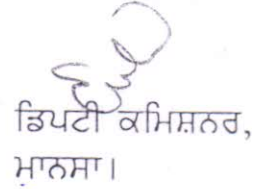 ਡਿਪਟੀ ਕਮਿਸ਼ਨਰ,
ਮਾਨਸਾ।